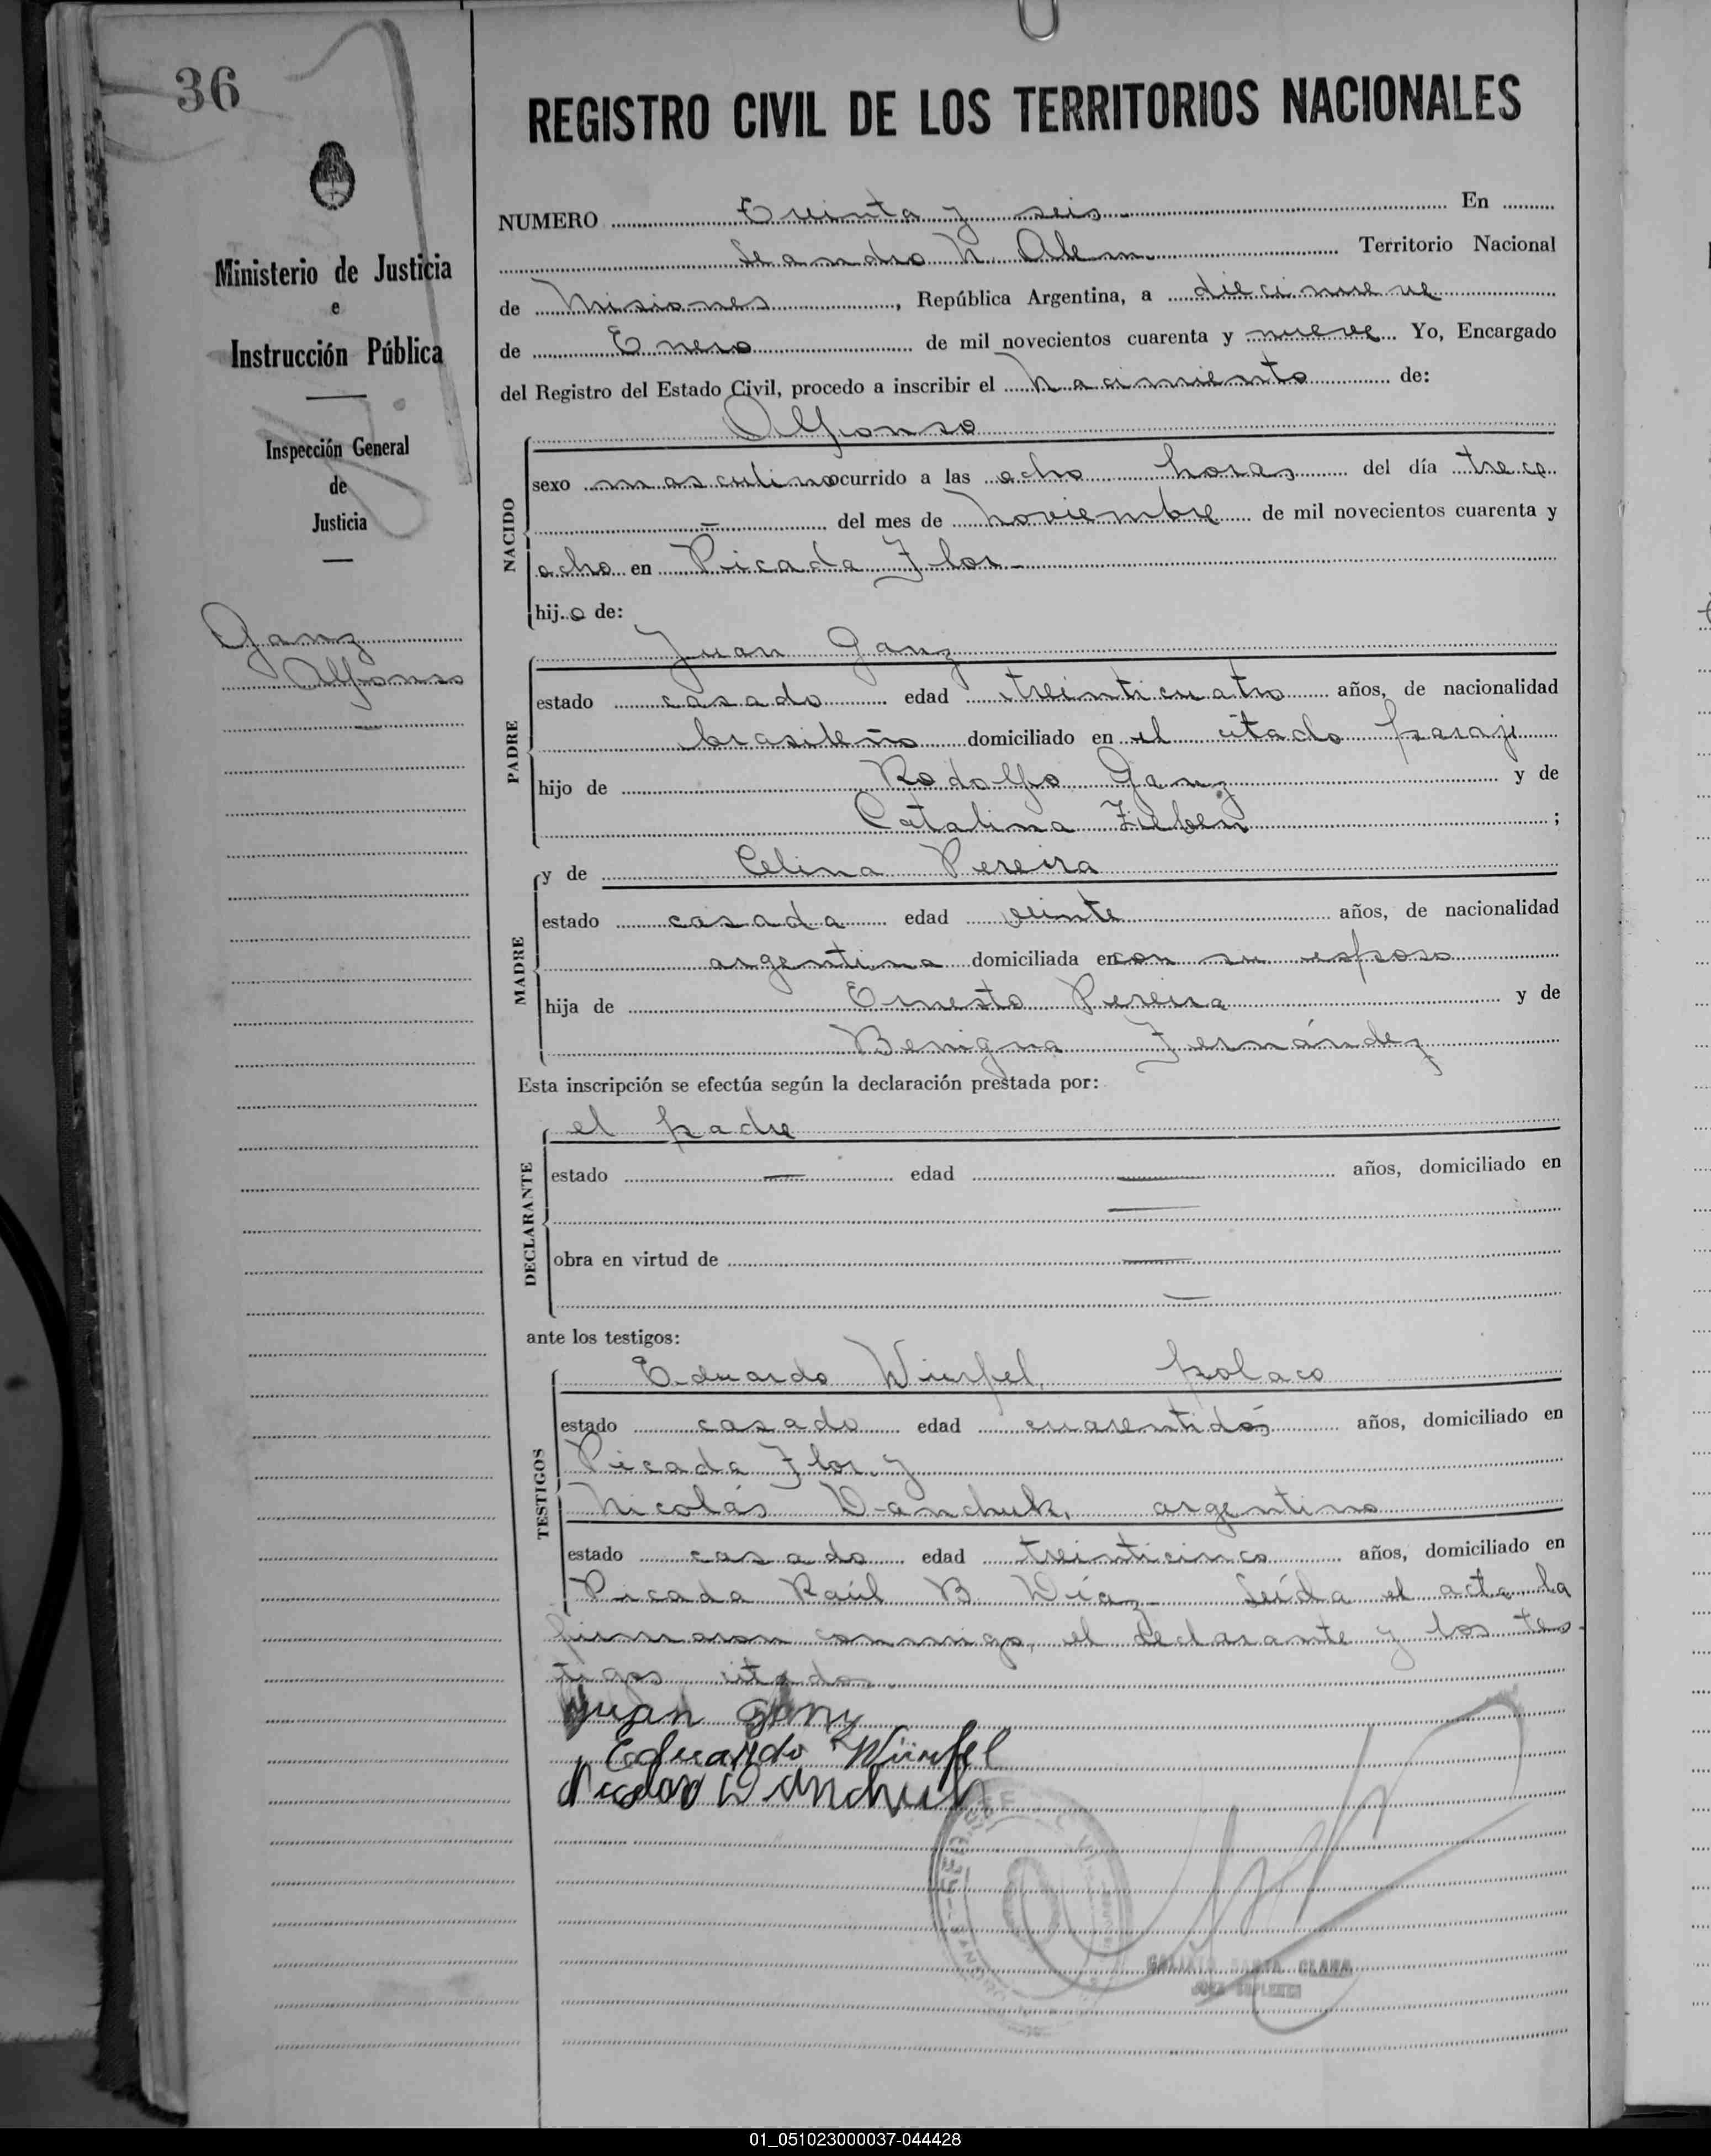 36
REGISTRO CIVIL DE LOS TERRITORIOS NACIONALES
Ministerio de Justicia
e
Instrucción Pública
Inspección General
de
Justicia
Ganz
Alfonso
NUMERO Treinta y seis En
Leandro N. Alem Territorio Nacional
de Misiones, República Argentina, a diecinueve
de Enero de mil novecientos cuarenta y nueve Yo, Encargado
del Registro del Estado Civil, procedo a inscribir el nacimiento de:
NACIDO
Alfonso
sexo masculino ocurrido a las ocho horas del día trece
- del mes de noviembre de mil novecientos cuarenta y
ocho en Picada Flor -
hijo de:
PADRE
Juan Ganz
estado casado edad treinticuatro años, de nacionalidad
brasileño domiciliado en el citado paraje
hijo de Rodolfo Ganz y de
Catalina ;
MADRE
y de Celina Pereira
estado casada edad veinte años, de nacionalidad
argentina domiciliada en con su esposo
hija de Ernesto Pereira y de
Benigna Fernández
Esta inscripción se efectúa según la declaración prestada por:
DECLARANTE
el padre
estado — edad — años, domiciliado en
—
obra en virtud de —
—
ante los testigos:
TESTIGOS
Eduardo Würfel, polaco
estado casado edad cuarentidós años, domiciliado en
Picada Flor y
Nicolás Wanchuk, argentino
estado casado edad treinticinco años, domiciliado en
Picada Raúl B. Díaz - Leída el acta la
firmaron conmigo, el declarante y los tes-
tigos citados
Juan Ganz
Eduardo Würfel
Nicolas Wanchuk
SANTA CLARA
JUEZ SUPLENTE
01_051023000037-044428